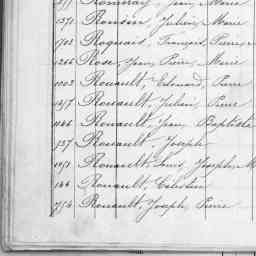 Romeray, Jean, Marie
1571 Romsin, Julien, Marie
1703 Roquais, François, Pierre,
1266 Rose, Jean, Pierre, Marie
1003 Rouault, Edouard, Pierre
1417 Rouault, Julien, Pierre
1144 Rouault, Jean, Baptiste
137 Rouault, Joseph
1051 Rouault, Louis, Joseph, M
144 Rouault, Célestin
754 Rouault, Joseph, Pierre